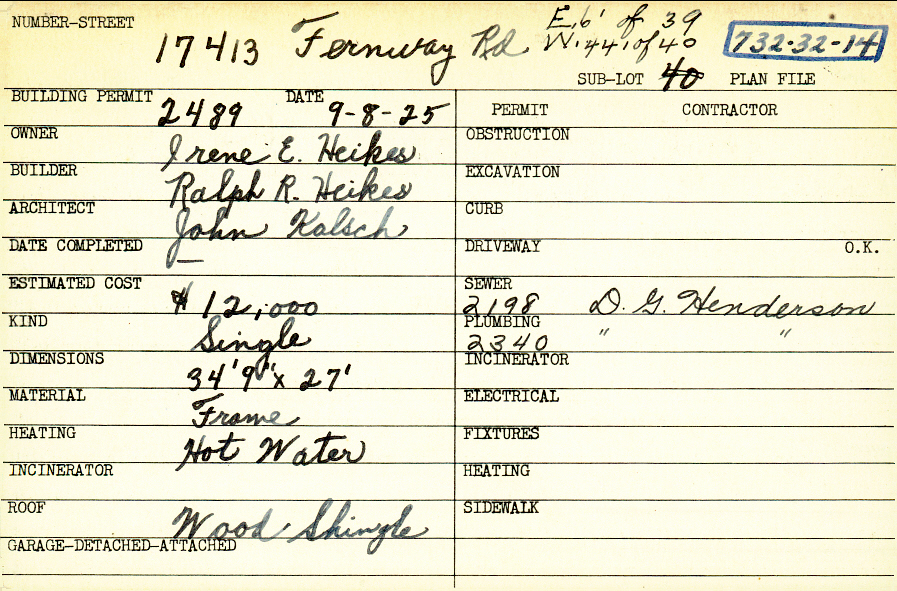 NUMBER-STREET 17413 Fernway Rd E.6' of 39
W.44' of 40 732-32-14
SUB-LOT 40 PLAN FILE
BUILDING PERMIT 2489 DATE 9-8-25
OWNER Irene E. Heikes
BUILDER Ralph R. Heikes
ARCHITECT John Kalsch
DATE COMPLETED —
ESTIMATED COST $12,000
KIND Single
DIMENSIONS 34'9" x 27'
MATERIAL Frame
HEATING Hot Water
INCINERATOR
ROOF Wood Shingle
GARAGE-DETACHED-ATTACHED
PERMIT CONTRACTOR
OBSTRUCTION
EXCAVATION
CURB
DRIVEWAY O.K.
SEWER 2198 D. G. Henderson
PLUMBING 2340 " "
INCINERATOR
ELECTRICAL
FIXTURES
HEATING
SIDEWALK